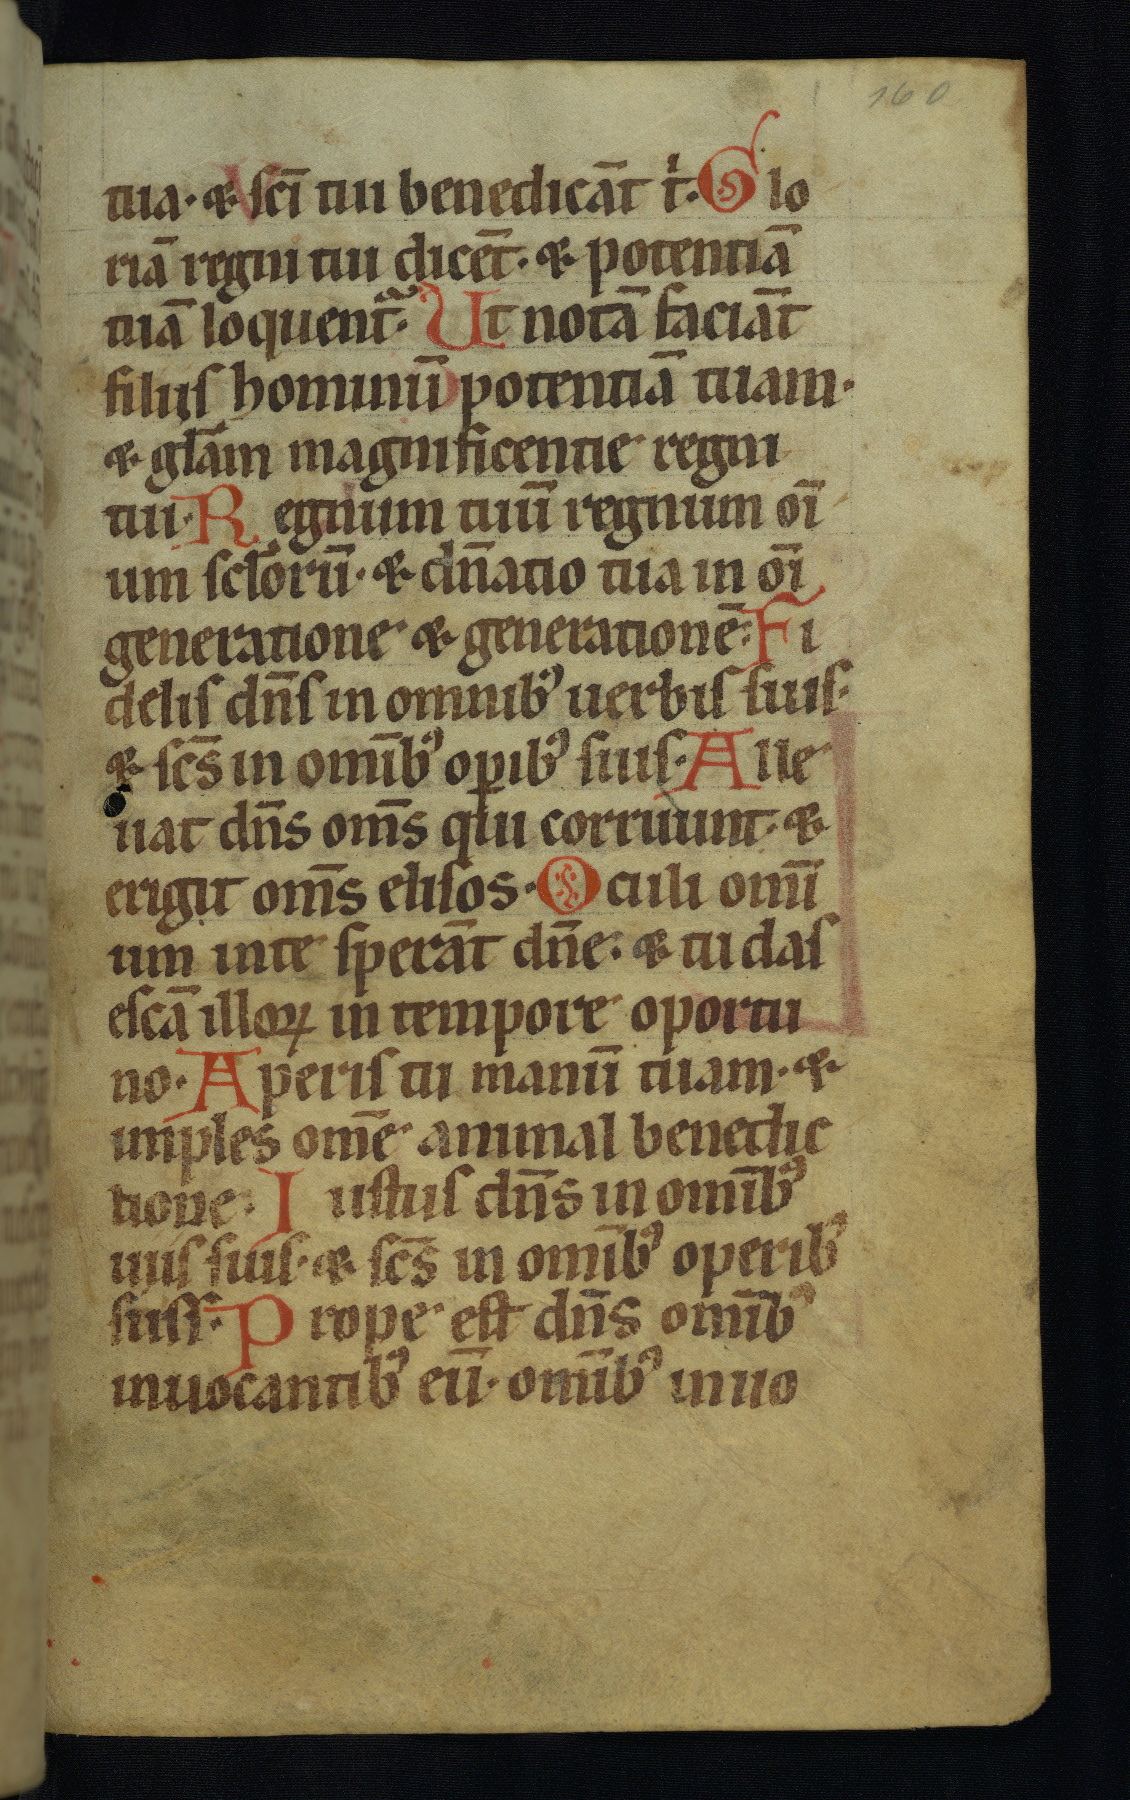 160
tua· & sc̄i tui benedicāt t͛· Glo
riā regni tui dicēt· & potentiā
tuā loquent᷑· Ut notā faciāt
filiis hominū potentiā tuam·
& gl̄am magnificentie regni
tui· Regnum tuū regnum oī
um sclorū· & dn̄atio tua in oī
generatione & generationē· Fi
delis dn̄s in omnibꝰ uerbis suis·
& sc̄s in om̄ibꝰ oꝑibꝰ suis· Alle
uat dn̄s om̄s qui corruunt· &
erigit om̄s elisos· Oculi omī
um inte sperāt dn̄e· & tu das
escā illoꝝ in tempore oportu
no· Aperis tu manū tuam· &
imples om̄e animal benedic
tione· Iustus dn̄s in om̄ibꝰ
uiis suis· & sc̄s in om̄ibꝰ operibꝰ
suiss· Prope est dn̄s om̄ibꝰ
inuocantibꝰ eū· om̄ibꝰ inuo